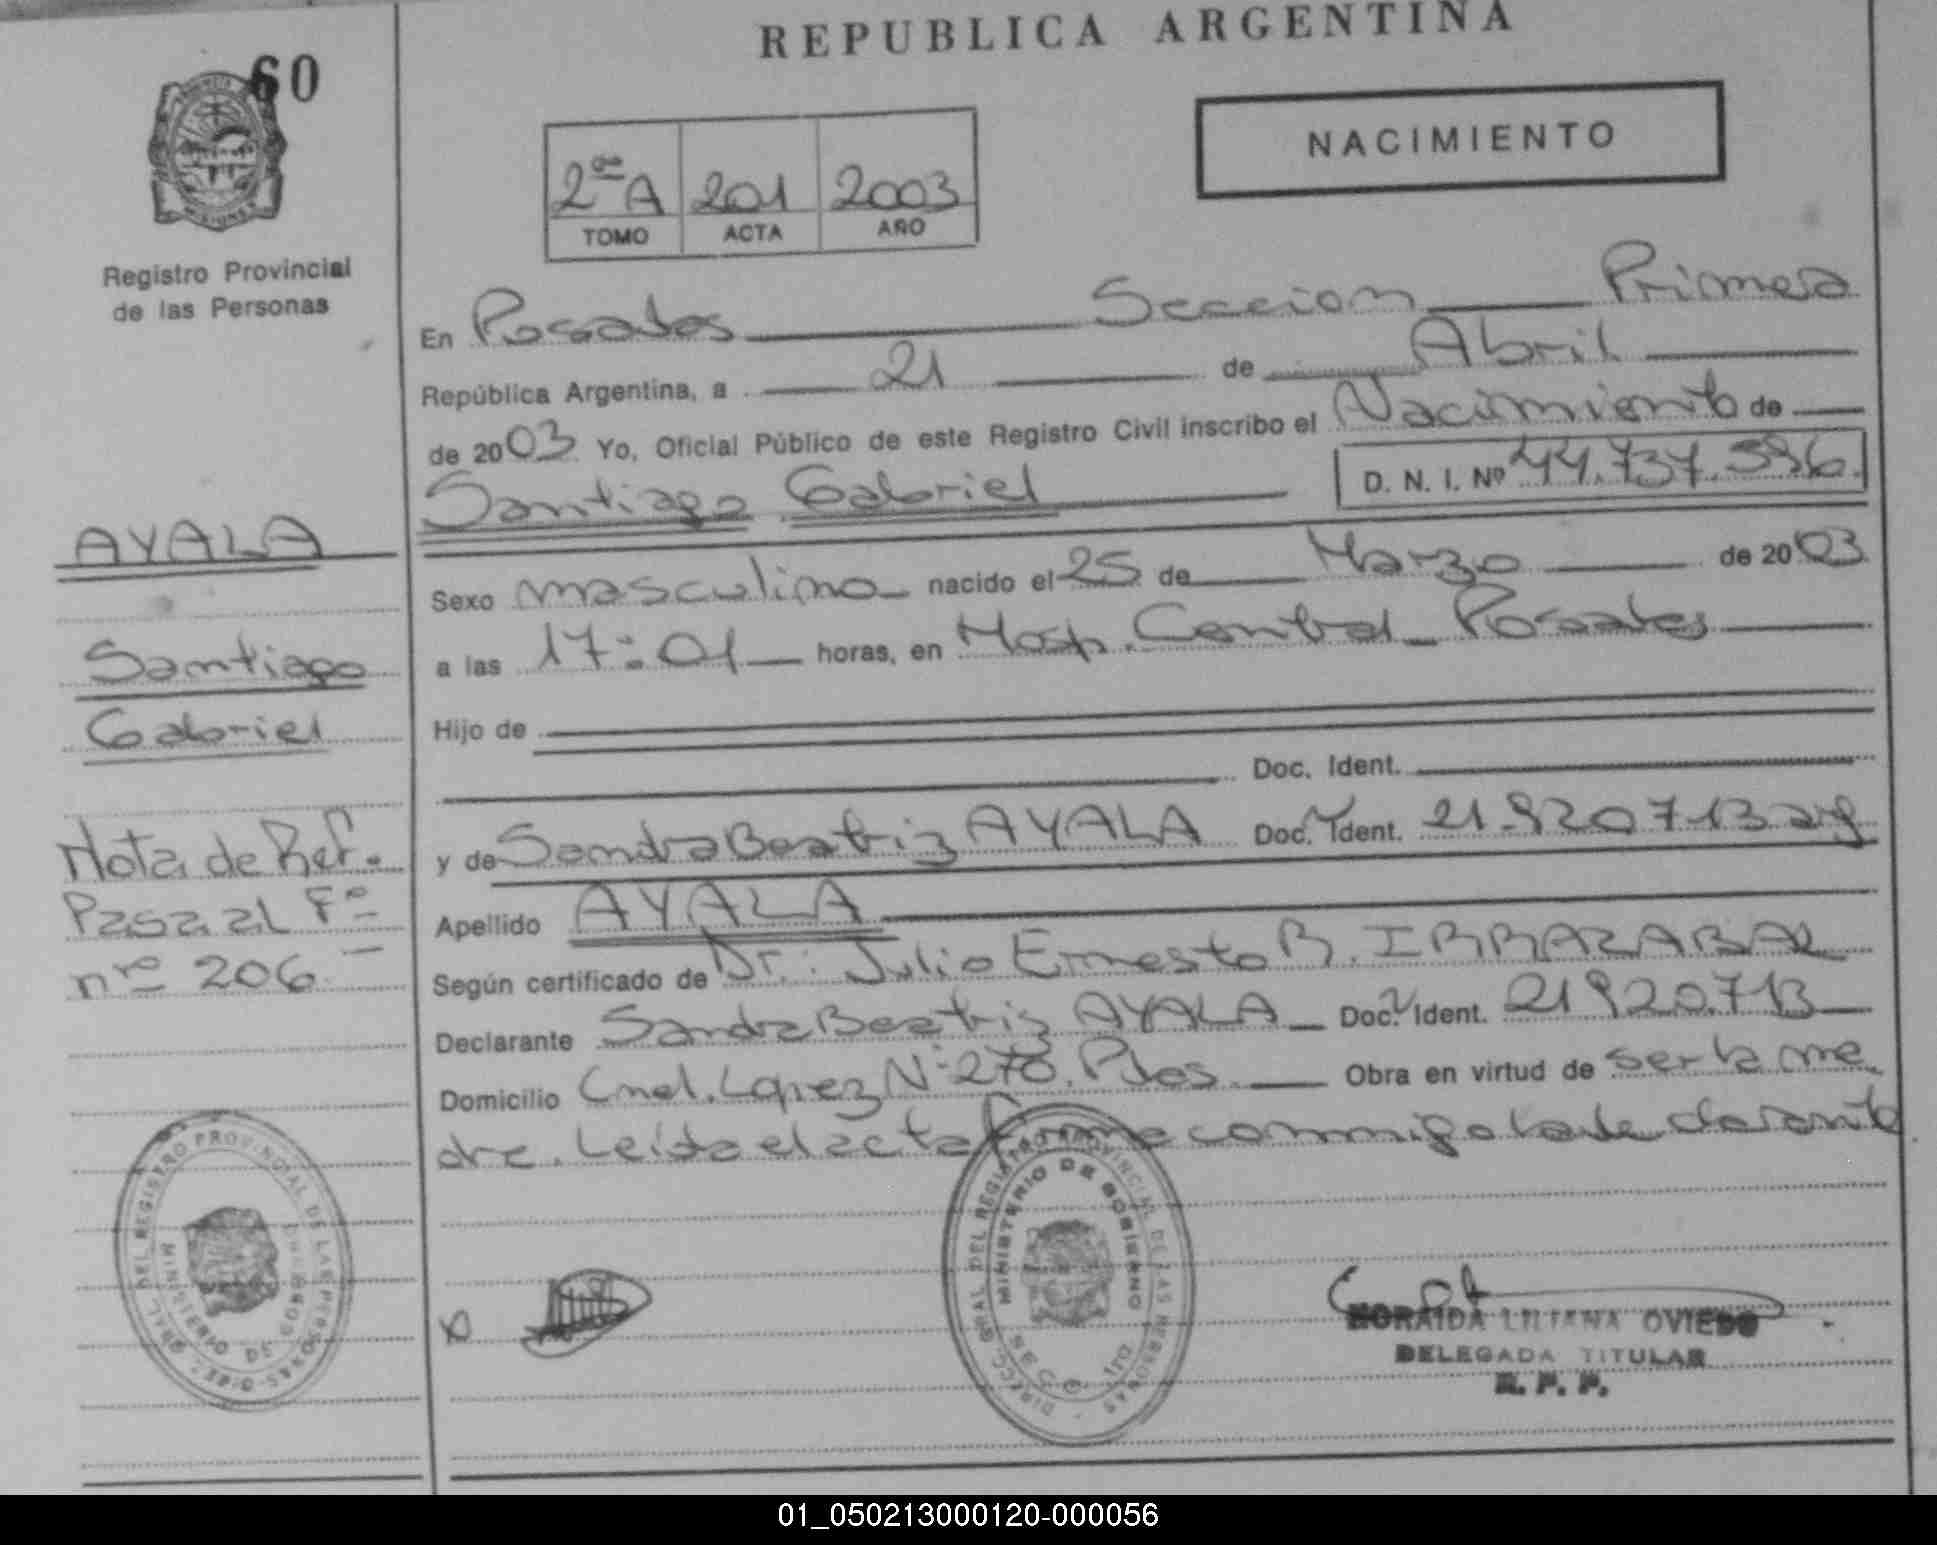 REPUBLICA ARGENTINA
60
NACIMIENTO
2ª A 201 2003
TOMO ACTA AÑO
Registro Provincial
de las Personas
En Posadas Seccion Primera
República Argentina, a 21 de Abril
de 2003 Yo, Oficial Público de este Registro Civil inscribo el Nacimiento de
Santiago Gabriel D. N. I. Nº 44.737.596.
AYALA
Santiago
Gabriel
Nota de Ref.
Pasa al Fº
nro 206.-
Sexo masculino nacido el 25 de Marzo de 2003
a las 17:01 horas, en Hosp. Central Posadas
Hijo de
Doc. Ident.
y de Sandra Beatriz AYALA Doc. Ident. 21.920713 arg
Apellido AYALA
Según certificado de Dr.: Julio Ernesto R. IRRAZABAL
Declarante Sandra Beatriz AYALA Doc. Ident. 21920.713
Domicilio Cnel. Lopez Nº 270. Pdas. Obra en virtud de ser la ma
dre. Leída el acta firma conmigo la declarante
DIREC. GRAL. DEL REGISTRO PROVINCIAL DE LAS PERSONAS
MINISTERIO DE GOBIERNO
DIREC. GRAL. DEL REGISTRO PROVINCIAL DE LAS PERSONAS
MINISTERIO DE GOBIERNO
NORAIDA LILIANA OVIEDO
DELEGADA TITULAR
R. P. P.
01_050213000120-000056